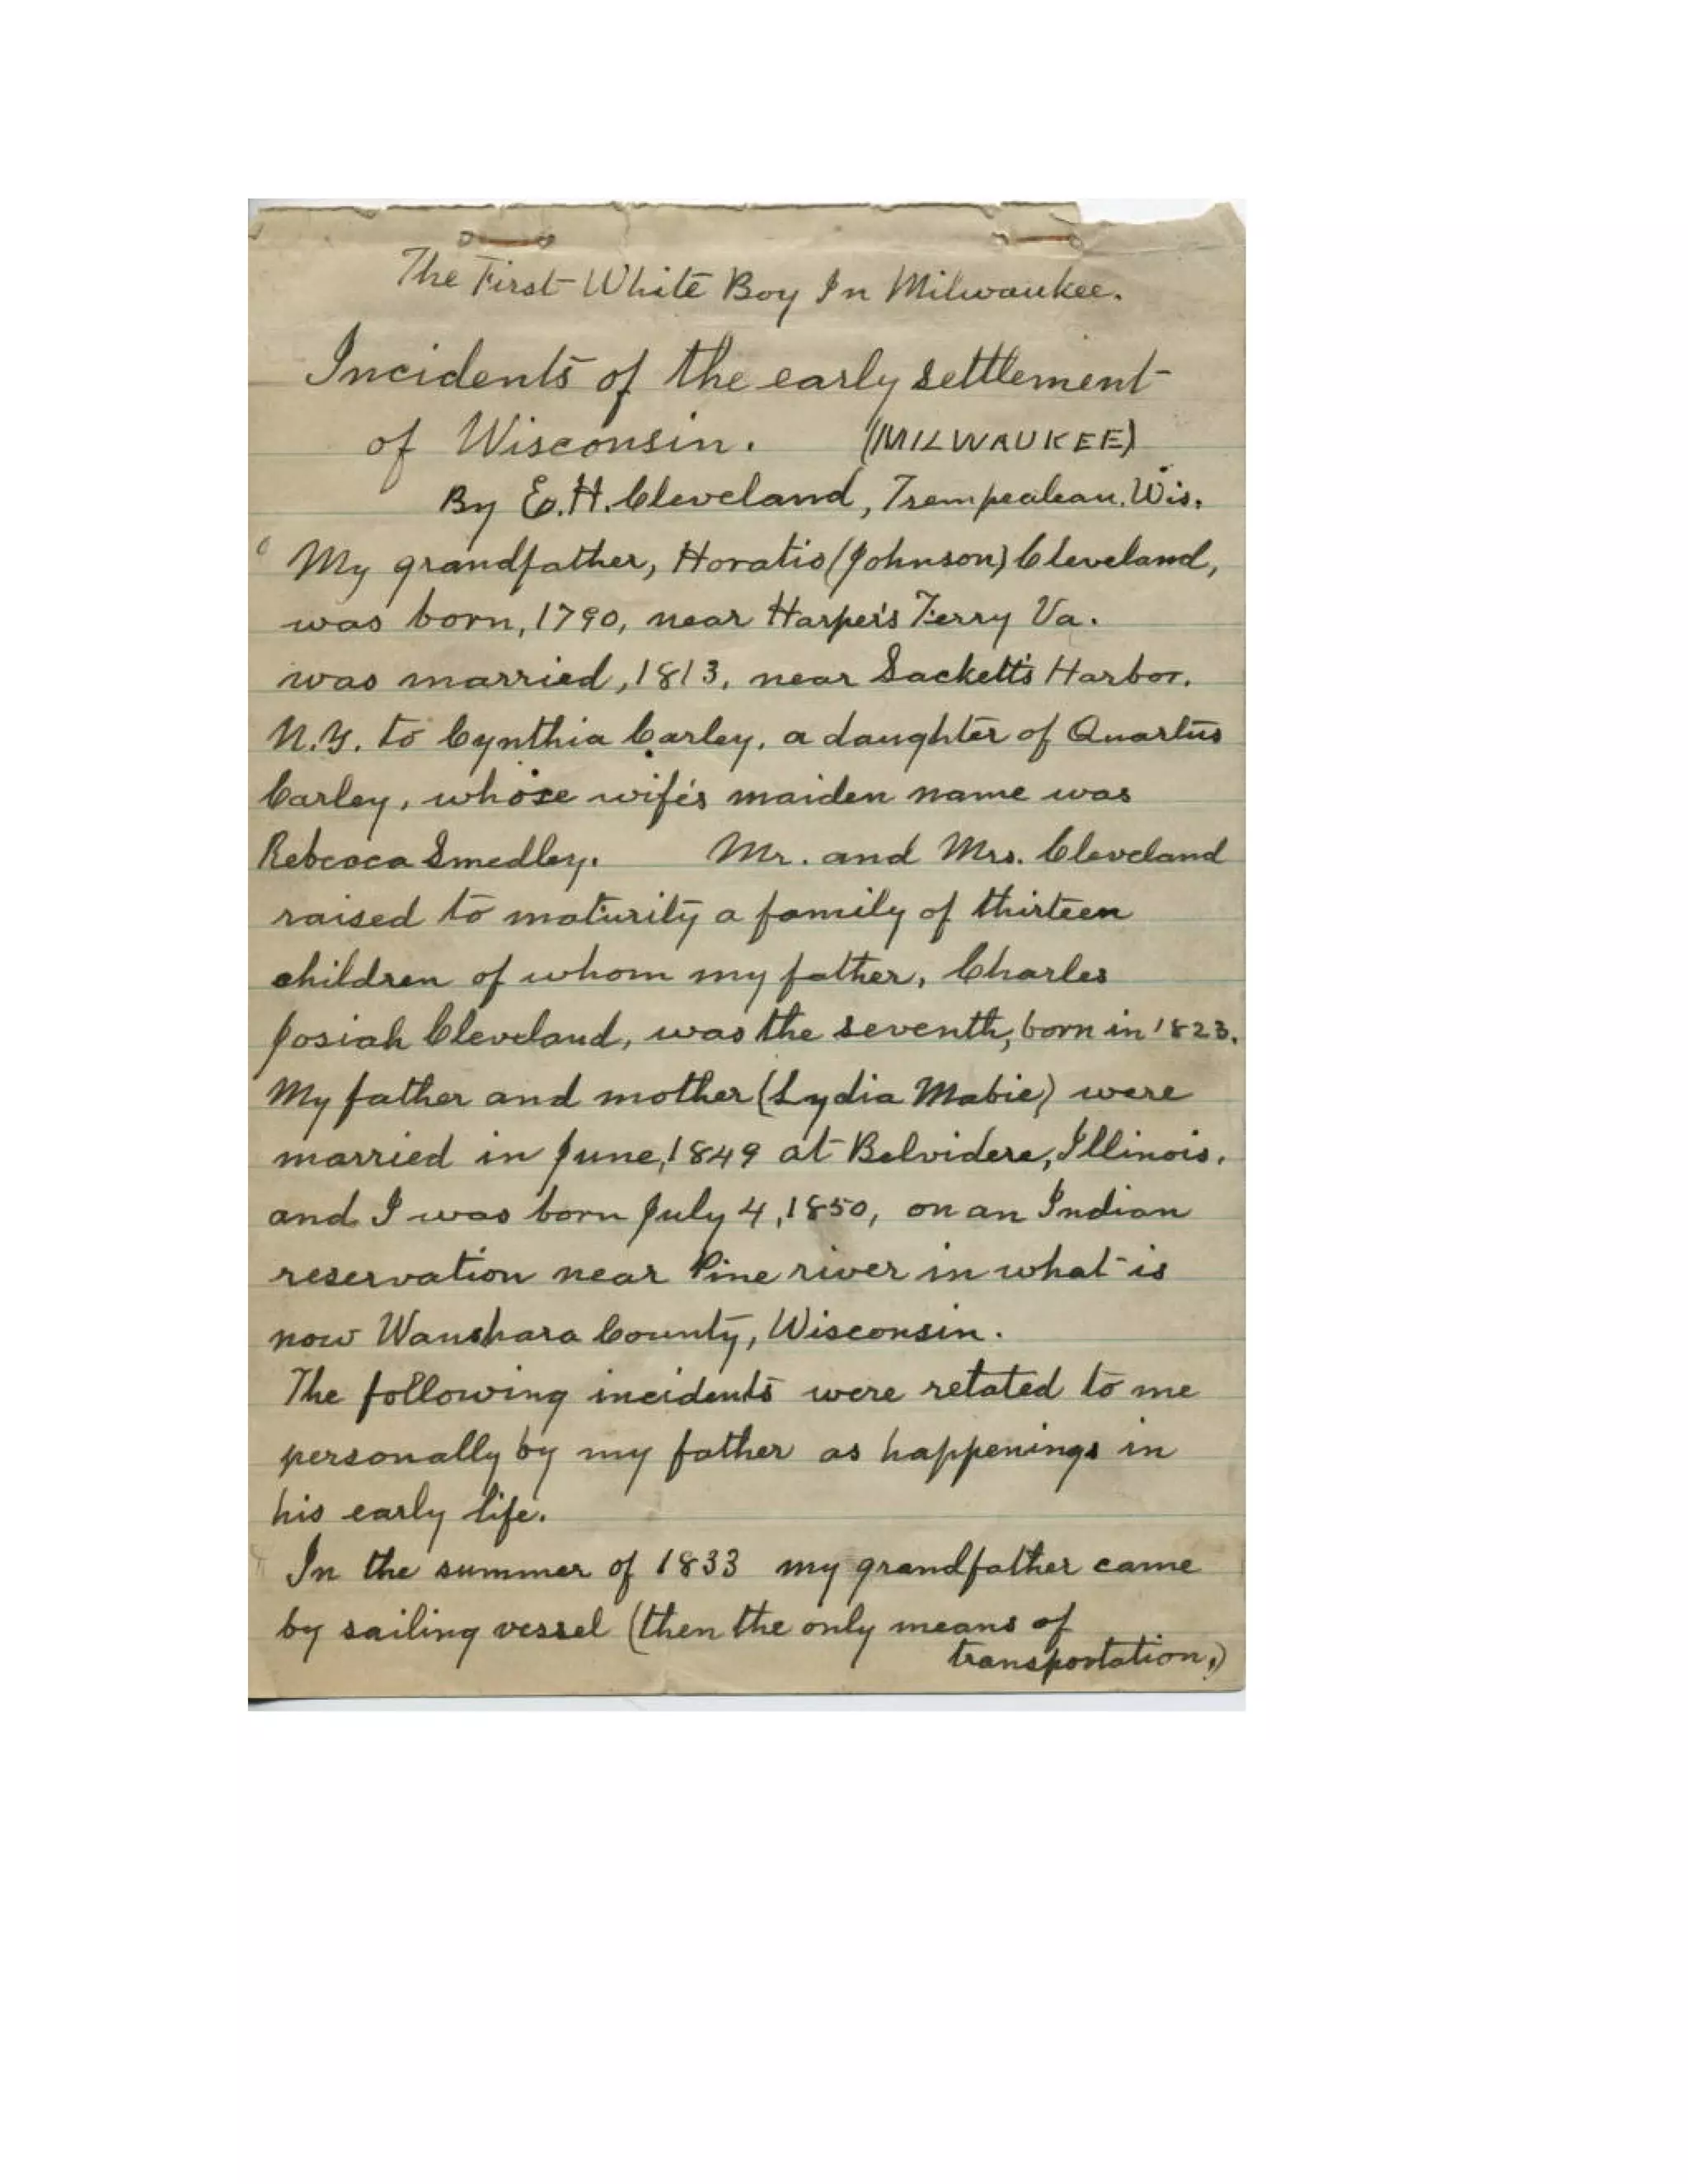 The First White Boy In Milwaukee.
Incidents of the early settlement
of Wisconsin. (MILWAUKEE)
By E.H. Cleveland, Trempealeau. Wis.
My grandfather, Horatio (Johnson) Cleveland,
was born, 1790, near Harper's Ferry Va.
was married, 1813, near Sackett's Harbor.
N.Y. to Cynthia Carley, a daughter of Quartus
Carley, whose wife's maiden name was
Rebecca Smedley. Mr. and Mrs. Cleveland
raised to maturity a family of thirteen
children of whom my father, Charles
Josiah Cleveland, was the seventh, born in 1823.
My father and mother (Lydia Mabie) were
married in June, 1849 at Belvidere, Illinois.
and I was born July 4, 1850, on an Indian
reservation near Pine river in what is
now Waushara County, Wisconsin.
The following incidents were related to me
personally by my father as happenings in
his early life.
In the summer of 1833 my grandfather came
by sailing vessel (then the only means of
transportation,)